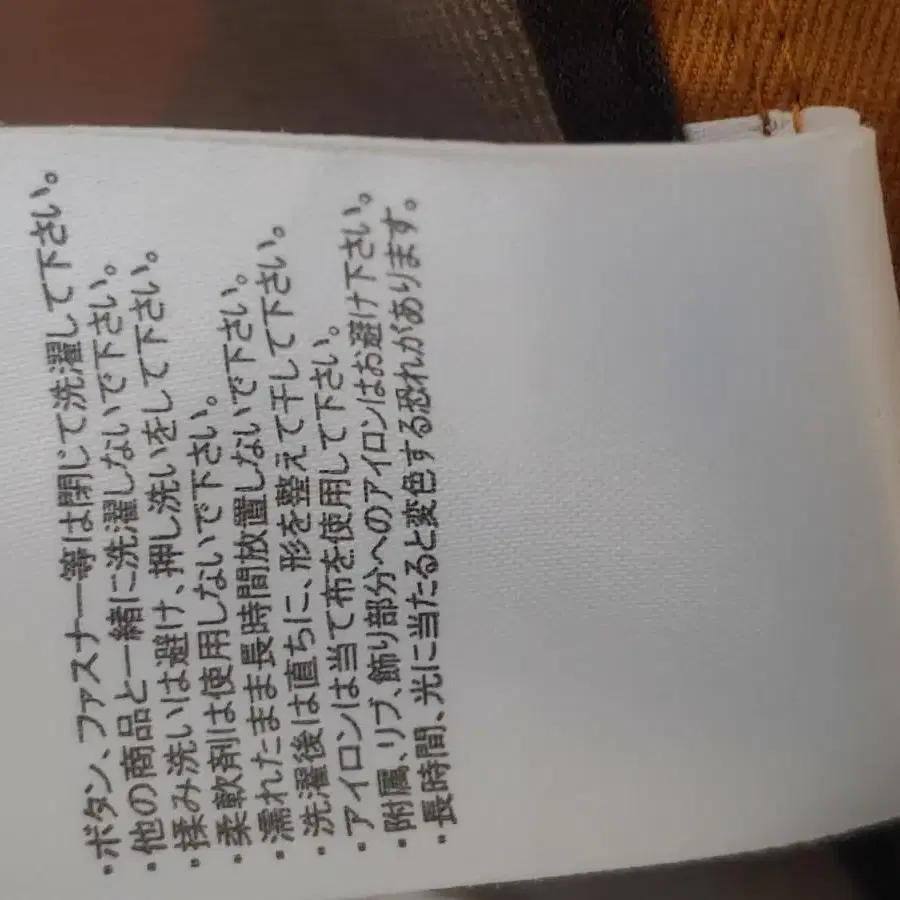 ・ボタン、ファスナー等は閉じて洗濯して下さい。
・他の商品と一緒に洗濯しないで下さい。
・揉み洗いは避け、押し洗いをして下さい。
・柔軟剤は使用しないで下さい。
・濡れたまま長時間放置しないで下さい。
・洗濯後は直ちに、形を整えて干して下さい。
・アイロンは当て布を使用して下さい。
・附属、リブ、飾り部分へのアイロンはお避け下さい。
・長時間、光に当たると変色する恐れがあります。